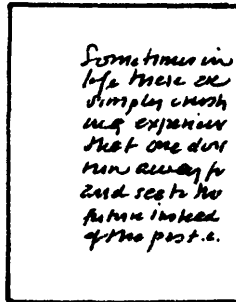 Sometimes in
life there are
simply crush
ing experienc
that one does
run away fr
and see to the
future instead
of the past.